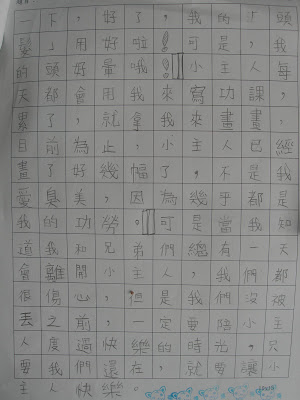 一下，好了，我的「頭
髮」用好啦！可是，我
的頭好暈哦！小主人每
天都會用我來寫功課，
累了，就拿我來畫畫，
目前為止，小主人已經
畫了好幾幅了，不是我
愛臭美，因為幾乎都是
我的功勞。可是當我知
道我和兄弟們總有一天
會離開小主人，我們都
很傷心，但是我們沒被
丟之前，一定要陪小主
人度過快樂的時光，只
要我們還在，就要讓小
主人快樂。